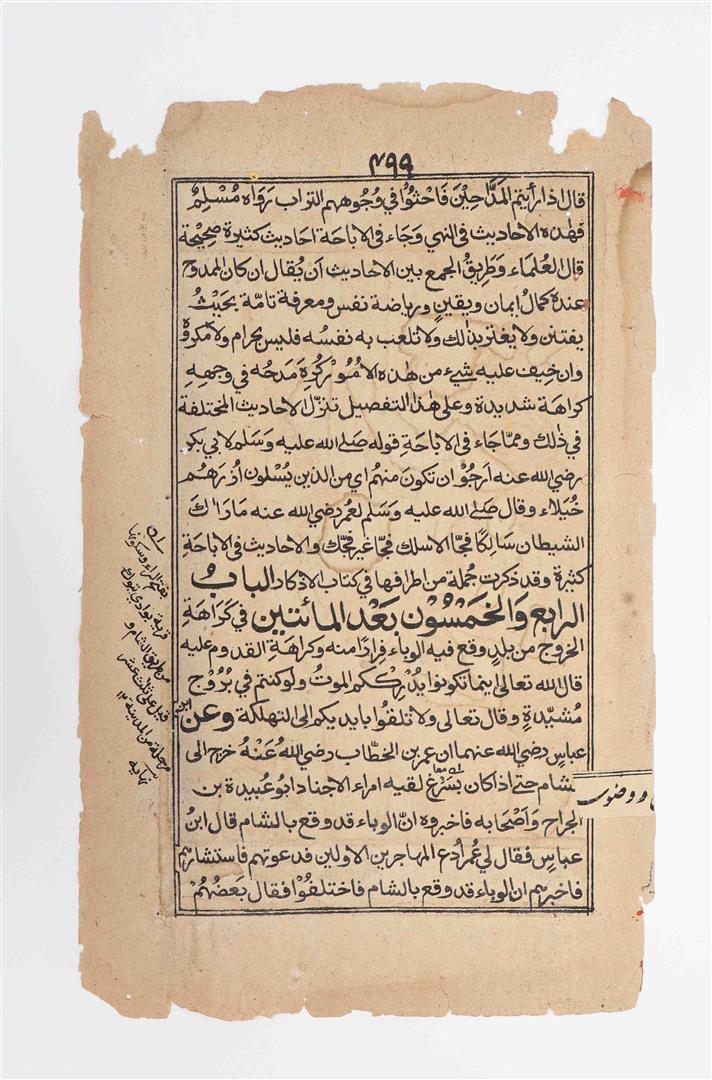 ٤٩٩
قال اذا رأيتم المَدَّاحِيْنَ فَاحْثُوْا في وُجُوههم التراب رَوَاه مُسْلِمٌ
فهٰذه الاحاديث فى النهي وَجَاء فى الاباحة احاديث كثيرة صحِيْحة
قال العُلَماء وَطَرِيقُ الجمع بين الاحاديث أن يُقال ان كان الممدوح
عنده كمالُ ايمان ويقينٍ ورياضة نفس ومعرفة تامّة بحَيْثُ
يفتتن ولا يغتر بذٰلك ولا تلعب به نفسُه فليس بحرام ولا مكروه
وان خِيف عليه شيء من هذه الامُوْر كُرِهَ مَدحُه في وجهِهِ
كراهة شديدة وعلى هٰذا التفصيل تنزّل الاحاديث المختلفة
في ذٰلك وممّا جاء فى الاباحةِ قوله صَلے الله عليه وَسَلم لابي بكر
رضي الله عنه اَرجُوْ ان تكونَ منهُم اي من الذين يُسْلون أُزرَهُم
خُيَلاء وقال صَلے الله عليه وَسَلم لعُمر رضي الله عنه مَا رَاٰكَ
الشيطان سَالِكًا فجّا الاسلك فجّا غير فجّك والاحاديث فى الاباحةِ
كثيرة وقد ذكرت جُملة من اطرافها في كتاب الاذكار البابُ
الرابع وَالخَمْسُوْن بَعْد المائتين في كَرَاهَةِ
الخروج من بلدٍ وقع فيه الوباء فِرارًا منه وكراهة القدوم عليه
قال الله تعالى اينما تكونوا يُدْرِكْكُم الموتُ ولو كنتم في بُرُوْجٍ
مُشَيَّدةٍ وقال تعالى ولا تلقُوا بايديكم الى التهلكة وعن ابن
عباس رضي الله عنهما ان عمر بن الخطاب رضي الله عَنْهُ خرج الى
الشام حتے اذا كان بسَرْغ لقيه امراء الاجناد ابو عُبيدة بن
الجراح وَاَصْحَابه فاخبروه انّ الوباء قد وقع بالشام قال ابنُ
عباسٍ فقال لي عُمر اُدع المهاجرين الاولين فدعوتهم فاستشارهم
فاخبرهم ان الوباء قد وقع بالشام فاختلفُوْا فقال بَعْضُهُمْ
بفتح الراء وسكونها
قرية بوادي تبوك
من طريق الشام و
قيل على ثلث عشر
مرحلة من المدينة ١٢
نهايه